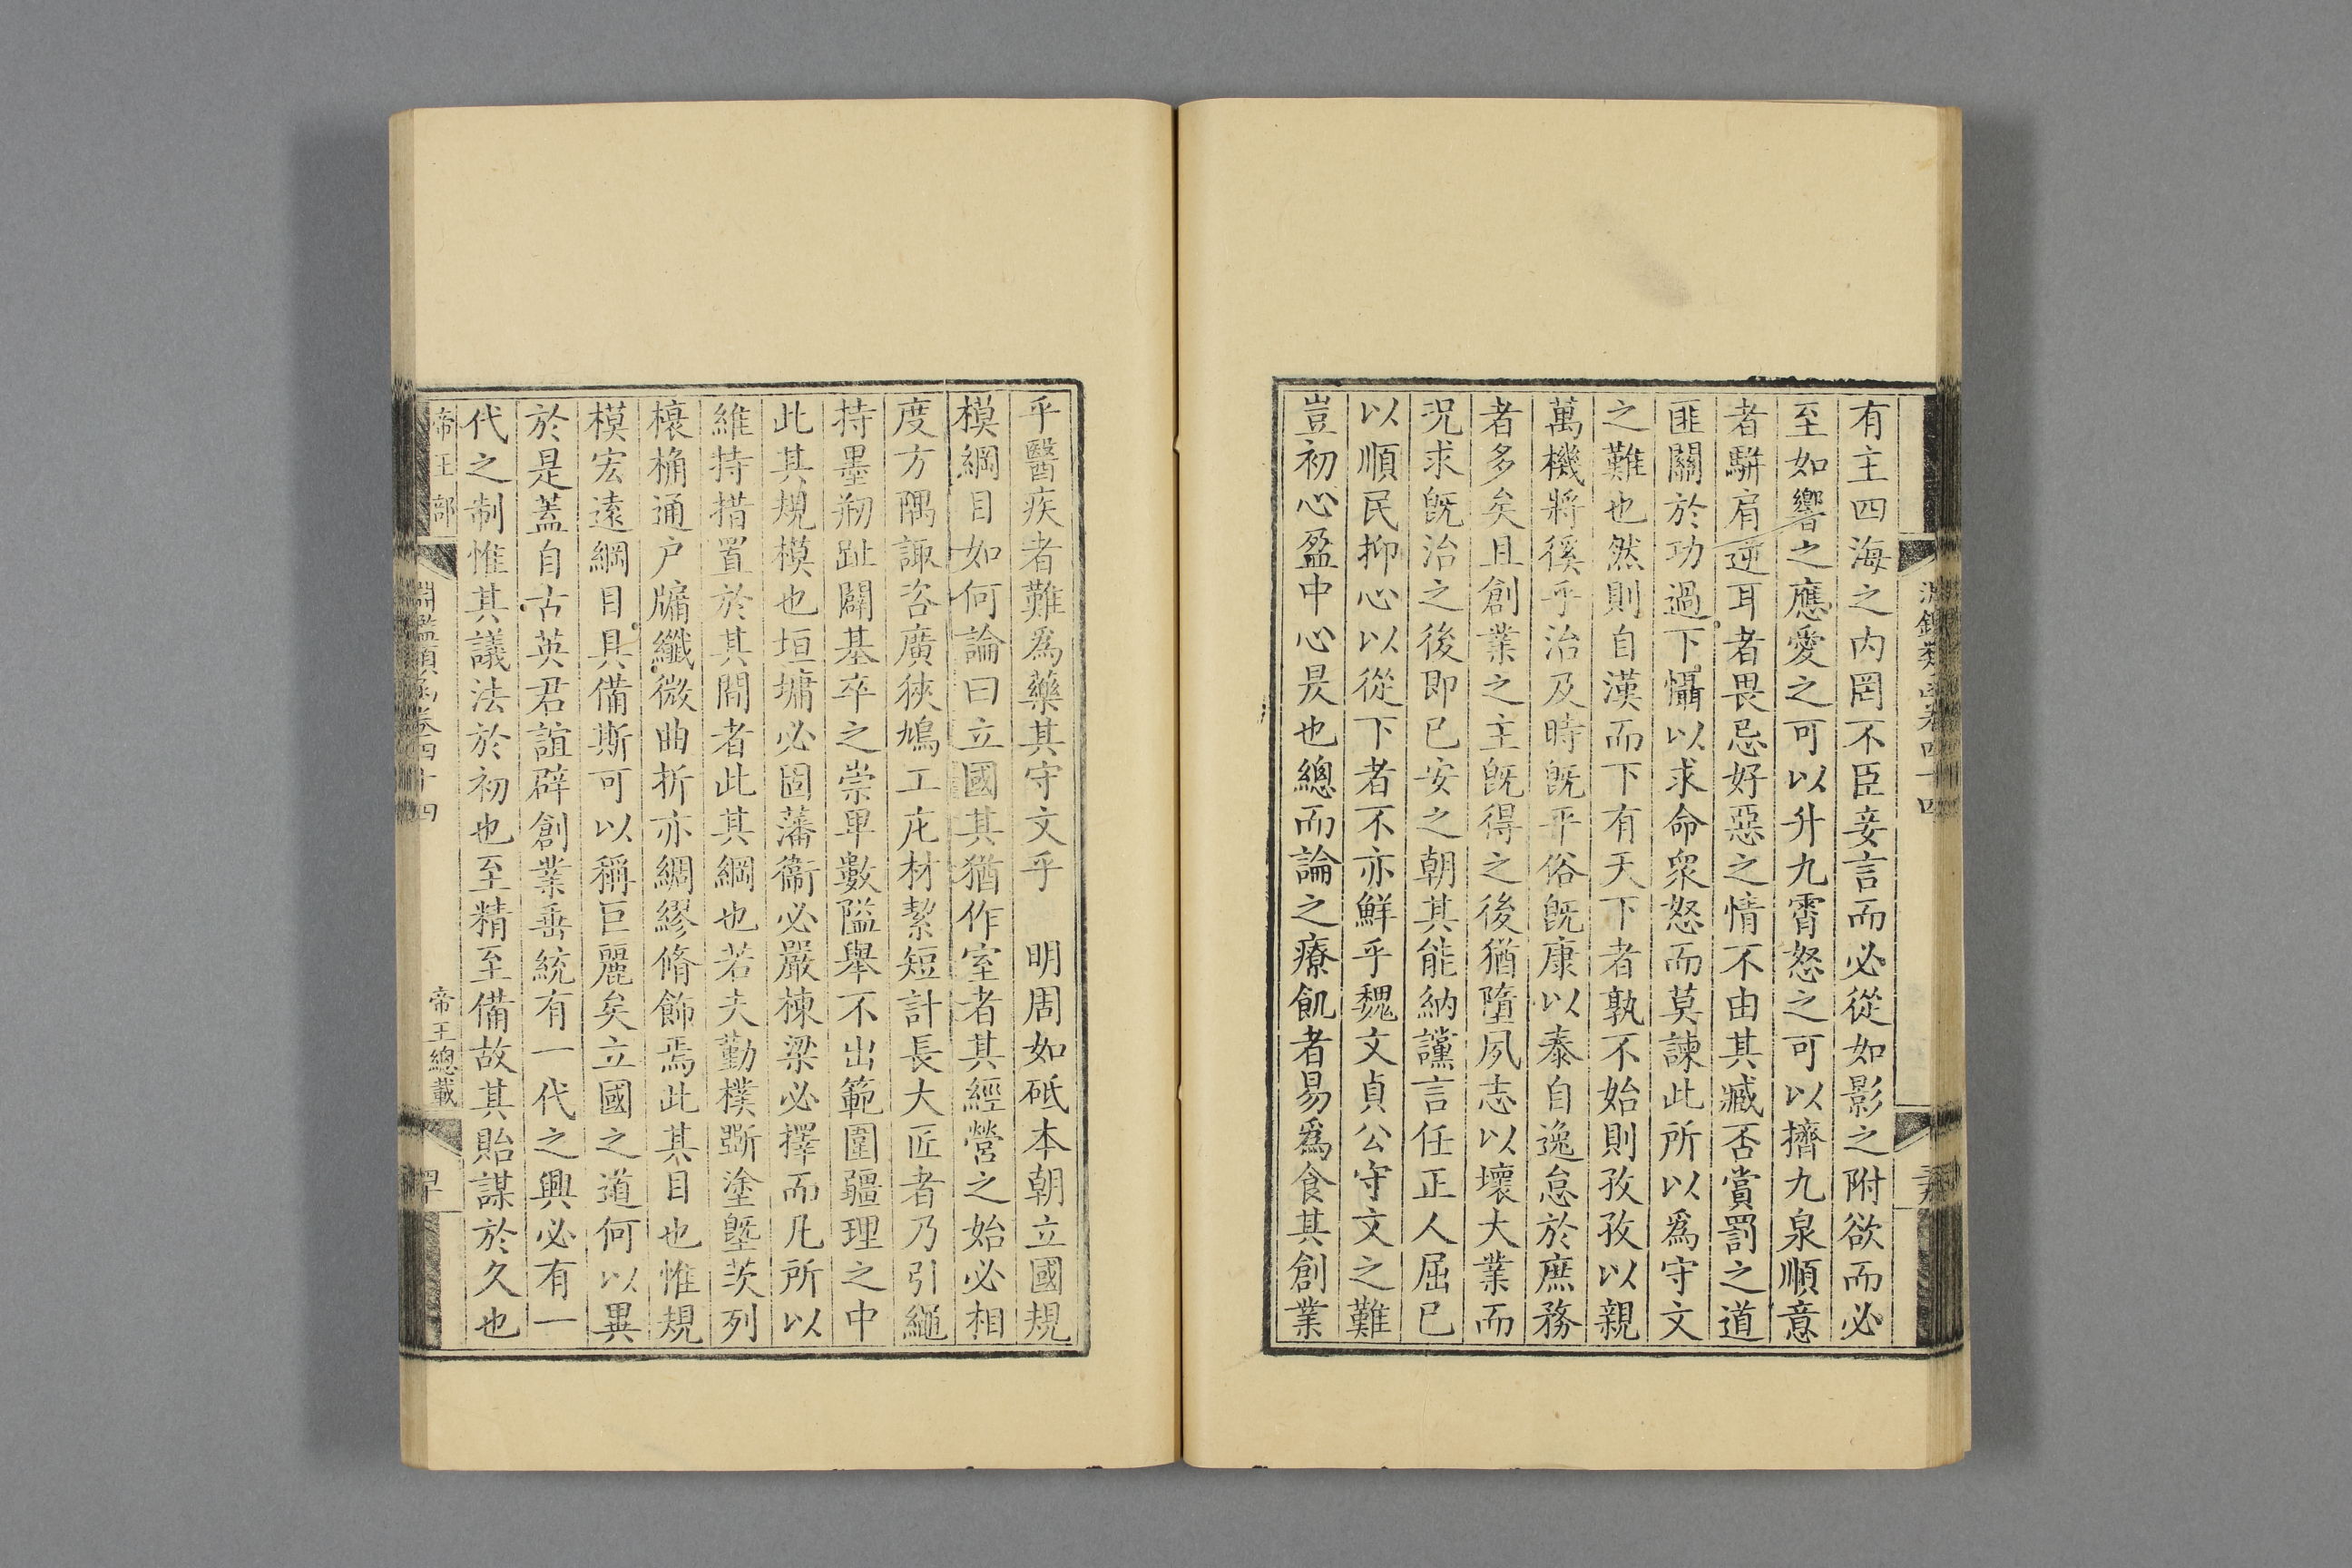 有主四海之内罔不臣妾言而必從如影之附欲而必
至如響之應愛之可以升九霄怒之可以擠九泉順意
者駢肩逆耳者畏忌好惡之情不由其臧否賞罰之道
匪關於功過下懾以求命衆怒而莫諫此所以爲守文
之難也然則自漢而下有天下者孰不始則孜孜以親
萬機將徯乎治及時旣平俗旣康以泰自逸怠於庶務
者多矣且創業之主旣得之後猶墮夙志以壞大業而
況求旣治之後即已安之朝其能納讜言任正人屈已
以順民抑心以從下者不亦鮮乎魏文貞公守文之難
豈初心盈中心昃也總而論之療飢者易爲食其創業
乎醫疾者難爲藥其守文乎　明周如砥本朝立國規
模綱目如何論曰立國其猶作室者其經營之始必相
度方隅諏咨廣狹鳩工庀材絜短計長大匠者乃引繩
持墨剏趾闢基卒之崇卑數隘舉不出範圍疆理之中
此其規模也垣墉必固藩衞必嚴棟梁必擇而凡所以
維持措置於其間者此其綱也若夫勤樸斲塗墍茨列
榱桷通户牖纖微曲折亦綢繆脩飾焉此其目也惟規
模宏遠綱目具備斯可以稱巨麗矣立國之道何以異
於是蓋自古英君誼辟創業垂統有一代之興必有一
代之制惟其議法於初也至精至備故其貽謀於久也
帝王部
淵鑑類函卷四十四
帝王總載